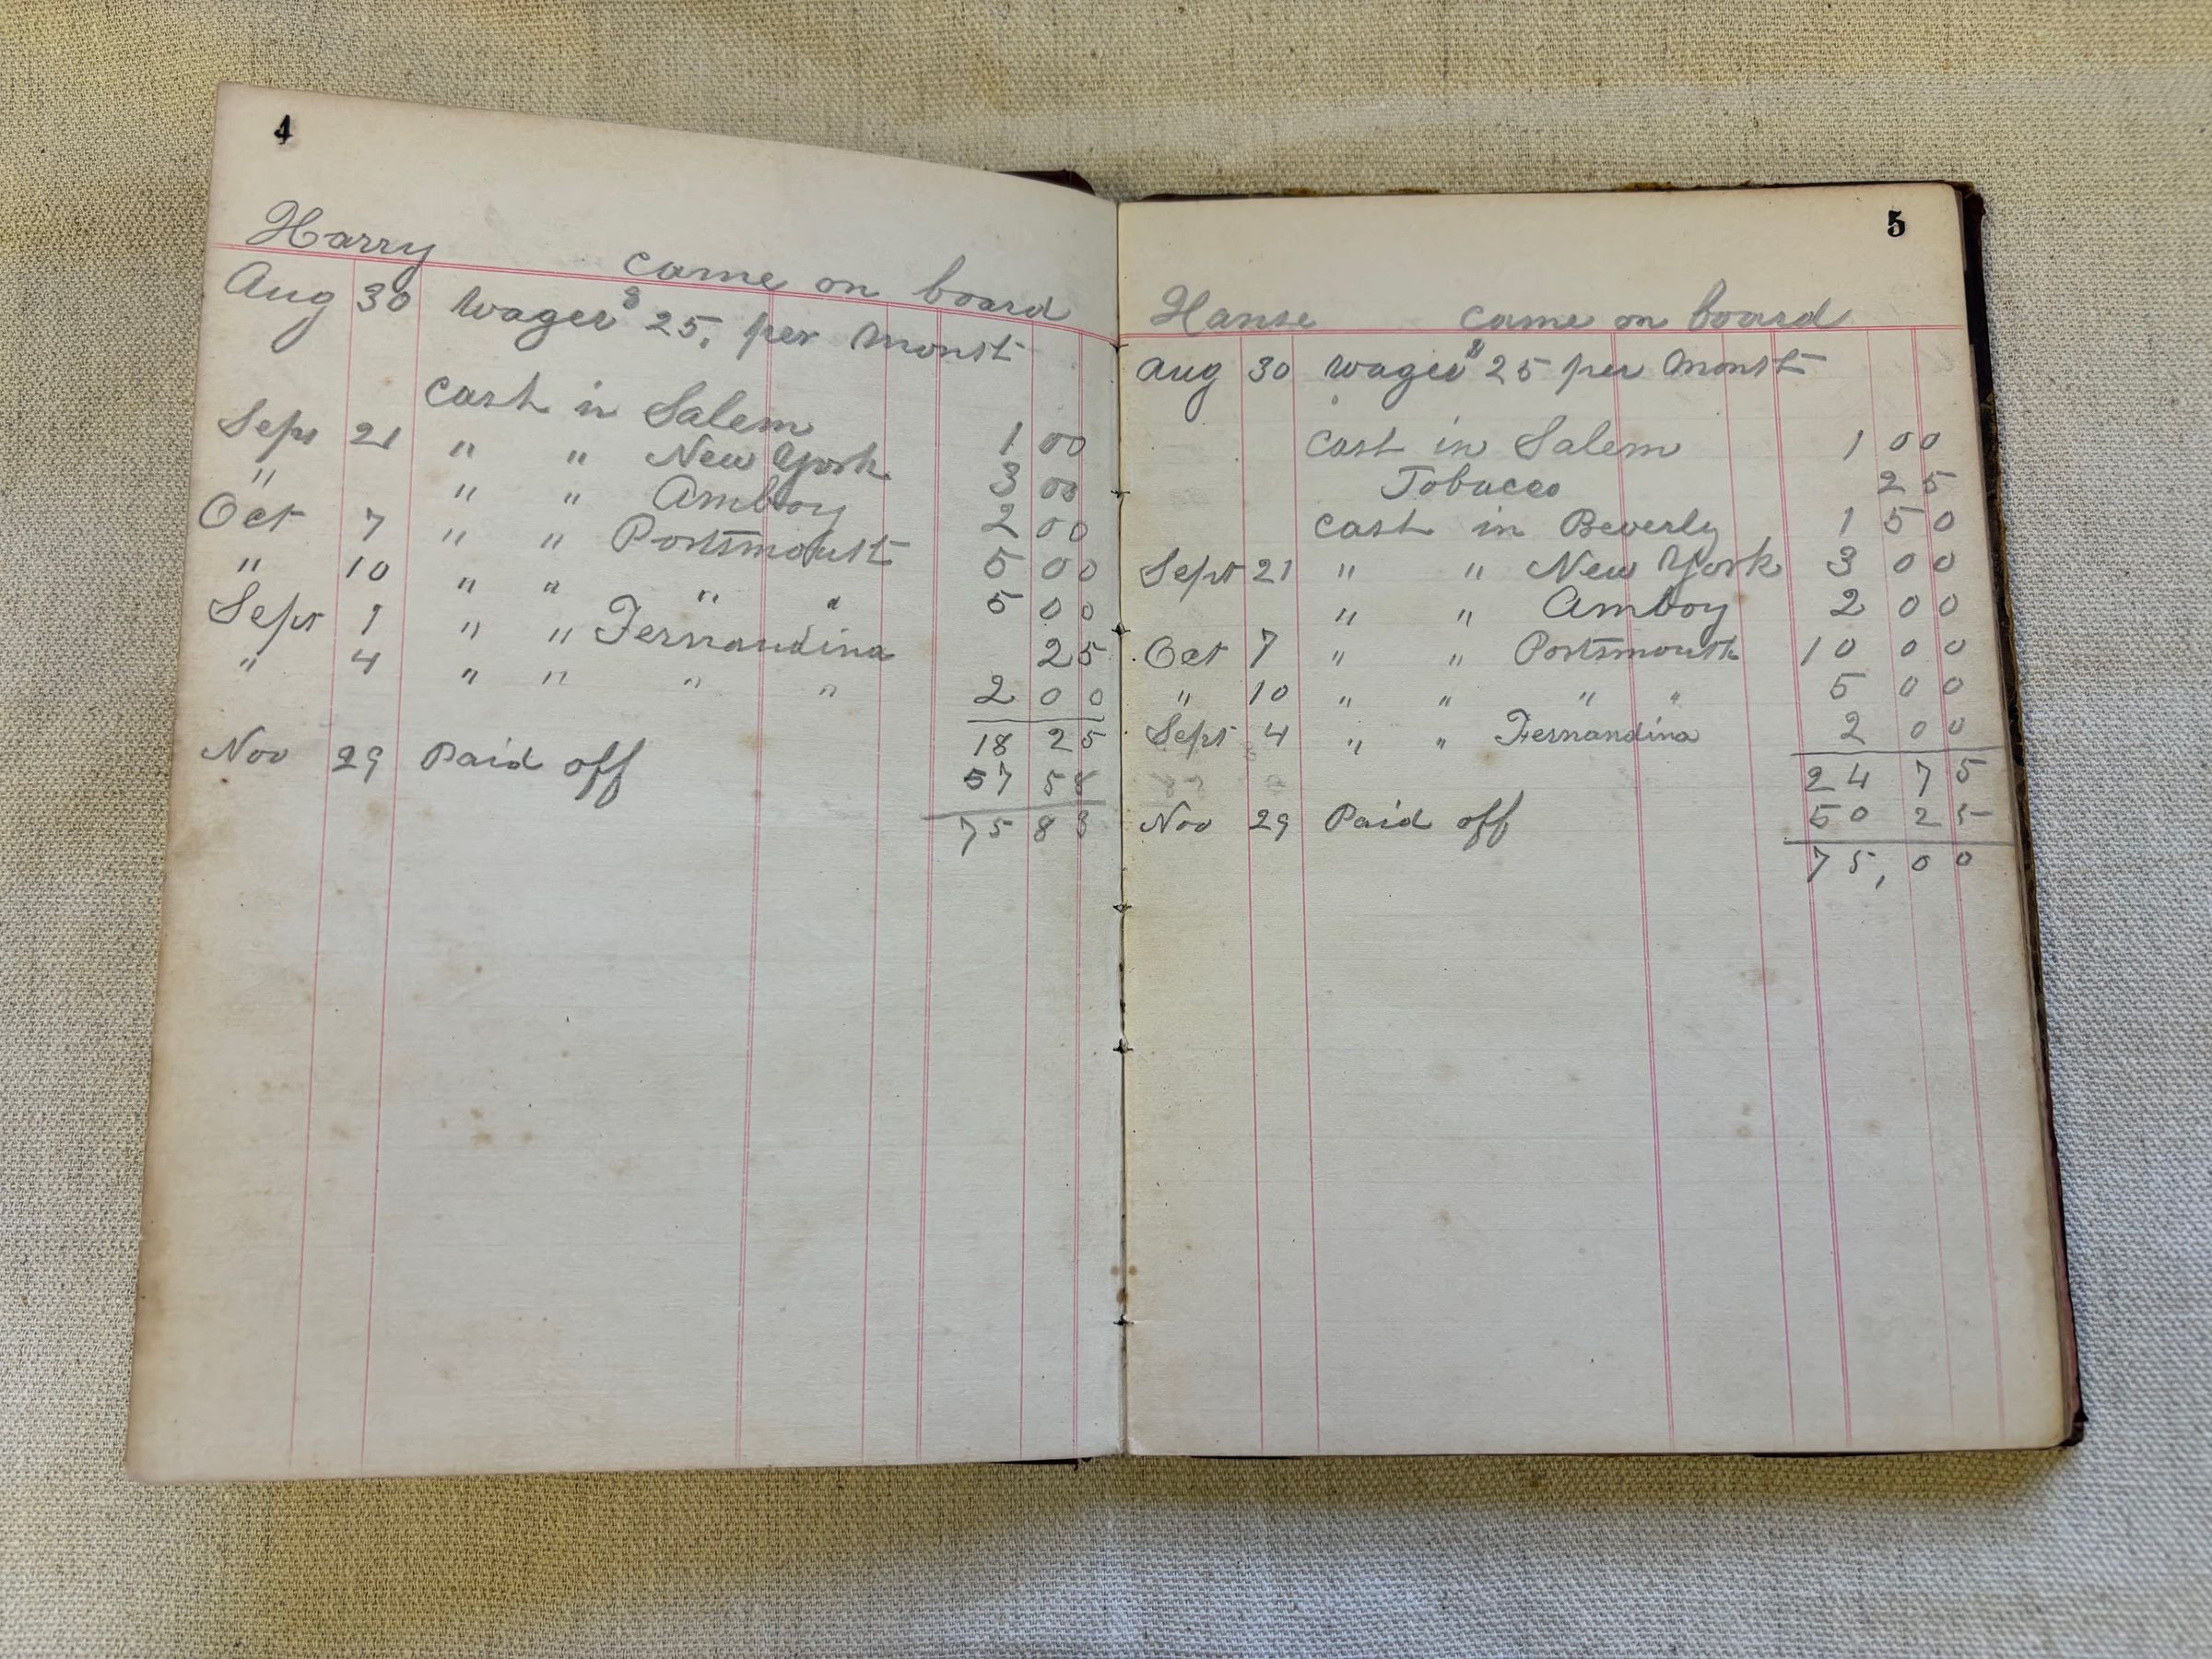 4
Harry came on board
Aug 30 wages $ 25. per monst
cash in Salem 1 00
Sept 21 " " New York 3 00
" " " Amboy 2 00
Oct 7 " " Portsmoust 5 00
" 10 " " " " 5 00
Sept 1 " " Fernandina 25
" 4 " " " " 2 00
18 25
Nov 29 Paid off 57 58
75 83
5
Hanse came on board
Aug 30 wages $ 25 per monst
cash in Salem 1 00
Tobacco 25
cash in Beverly 1 50
Sept 21 " " New York 3 00
" " Amboy 2 00
Oct 7 " " Portsmousth 10 00
" 10 " " " " 5 00
Sept 4 " " Fernandina 2 00
24 75
Nov 29 Paid off 50 25
75,00